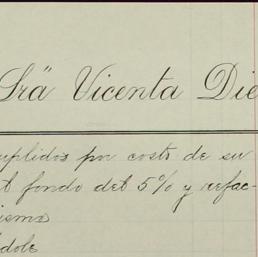 Sra Vicenta Die
uplidos por costo de su
el fondo del 5% y refac-
ismo
dole